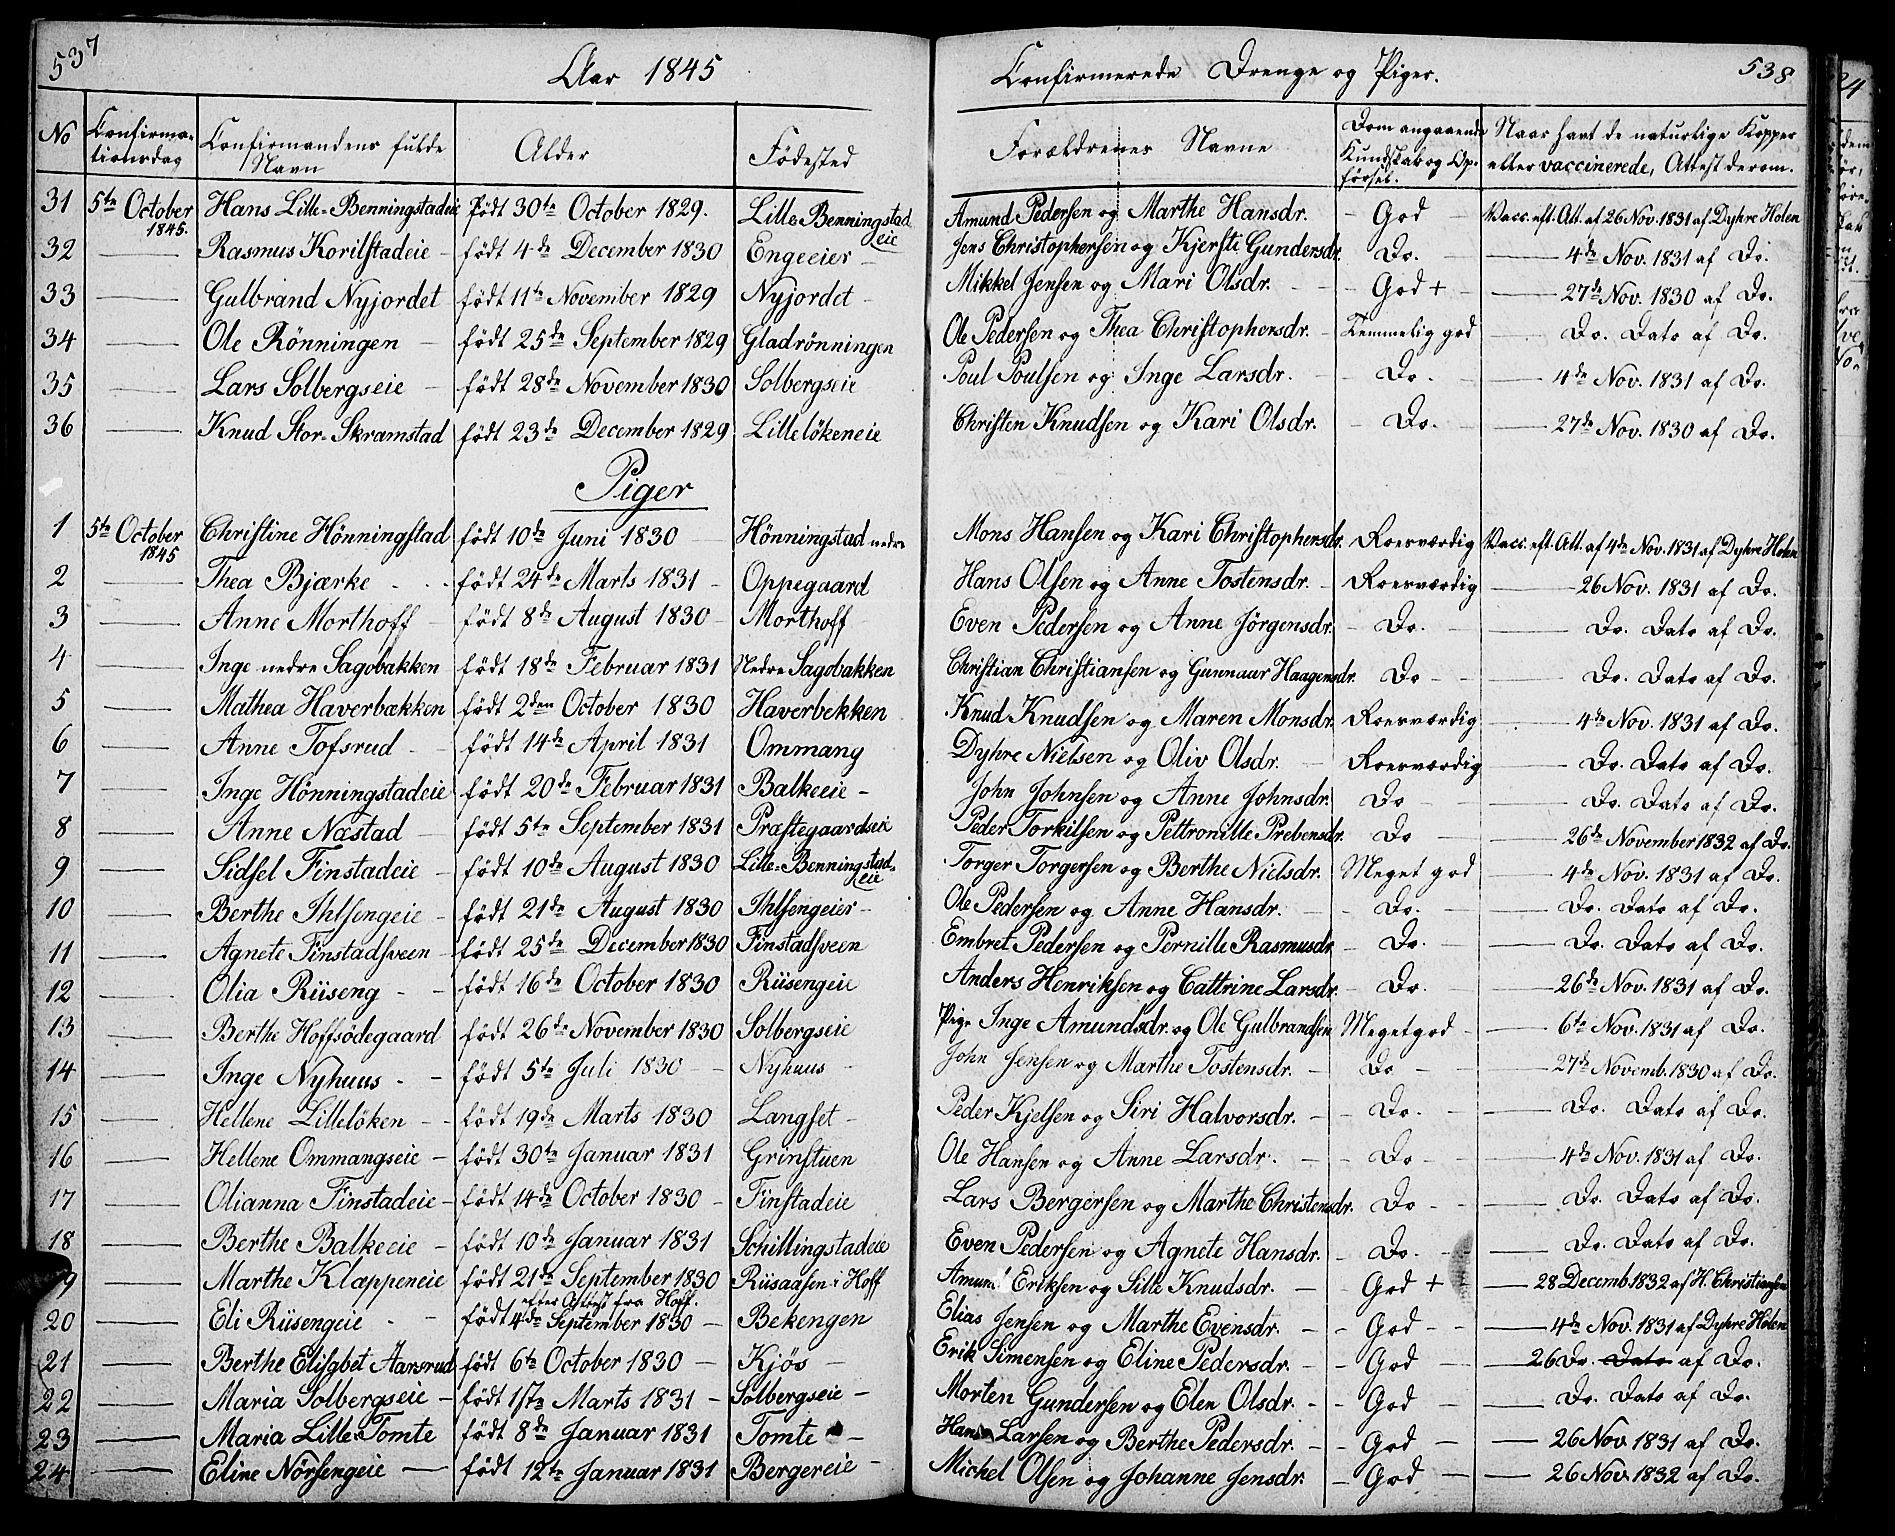 537
Aar 1845
Confirmerede Drenge og Piger.
538
No | Confirmationsdag | Confirmandens fulde Navn | Alder | Fødested | Forældrenes Navne | Dom angaaende Kundskab og Opførsel. | Naar havt de naturlige Kopper eller vaccinerede, Attest derom.
31 | 5te October 1845. | Hans Lille-Benningstadeie | Født 30te October 1829. | Lille-Benningstadeie | Amund Pedersen og Marthe Hansdr. | God | Vacc. eft. Att. af 26 Nov. 1831 af Dyhre Holen
32 | — | Rasmus Korilstadeie | født 4de December 1830 | Engeeier | Jens Christophersen og Kjersti Gundersdr. | Do. | — 4de Nov. 1831 af Do.
33 | — | Gulbrand Nyjordet | født 11te November 1829 | Nyjordet | Mikkel Jensen og Mari Olsdr. | God + | — 27de Nov. 1830 af Do.
34 | — | Ole Rönningen | født 25de September 1829 | Gladrönningen | Ole Pedersen og Thea Christophersdr. | Temmelig god | Do. Dato af Do.
35 | — | Lars Solbergseie | født 28de November 1830 | Solbergseie | Poul Poulsen og Inge Larsdr. | Do. | — 4de Nov. 1831 af Do.
36 | — | Knud Stor-Skramstad | født 23de December 1829 | Lillelökeneie | Christen Knudsen og Kari Olsdr. | Do. | — 27de Nov. 1830 af Do.
Piger
1 | 5te October 1845 | Christine Hönningstad | født 10de Juni 1830 | Hönningstad nedre | Mons Hansen og Kari Christophersdr. | Roesværdig | Vacc. eft. Att. af 4de Nov. 1831 af Dyhre Holen
2 | — | Thea Bjærke | født 24de Marts 1831 | Oppegaard | Hans Olsen og Anne Tostensdr. | Roesværdig | — 26 Nov. 1831 af Do.
3 | — | Anne Morthoff | født 8de August 1830 | Morthoff | Even Pedersen og Anne Jörgensdr. | Do. | — Do. Dato af Do.
4 | — | Inge nedre Sagobakken | født 18de Februar 1831 | Nedre Sagobakken | Christian Christiansen og Gunnaur Haagensdr. | Do | — Do. Dato af Do.
5 | — | Mathea Haverbækken | født 2den October 1830 | Haverbekken | Knud Knudsen og Maren Monsdr. | Roesværdig | — 4de Nov. 1831 af Do.
6 | — | Anne Tofsrud | født 14de April 1831 | Ommang | Dyhre Nielsen og Oliv Olsdr. | Roesværdig | — Do. Dato af Do.
7 | — | Inge Hönningstadeie | født 20de Februar 1831 | Balkeeie | John Johnsen og Anne Johnsdr. | Do | — Do. Dato af Do.
8 | — | Anne Næstad | født 5te September 1831 | Præstegaardseie | Peder Torkilsen og Pettronille Prebensdr. | Do | — 26de November 1832 af Do.
9 | — | Sidsel Finstadeie | født 10de August 1830 | Lille-Benningstadeie | Torger Torgersen og Berthe Nielsdr. | Meget god | — 4de Nov. 1831 af Do.
10 | — | Berthe Ihlsengeie | født 21de August 1830 | Ihlsengeier | Ole Pedersen og Anne Hansdr. | Do. | — Do. Dato af Do.
11 | — | Agnete Finstadsveen | født 25de December 1830 | Finstadsveen | Embret Pedersen og Pernille Rasmusdr. | Do. | — Do. Dato af Do.
12 | — | Olia Riiseng | født 16de October 1830 | Riisengeie | Anders Henriksen og Cattrine Larsdr. | Do. | — 26de Nov. 1831 af Do.
13 | — | Berthe Hoffsödegaard | født 26de November 1830 | Solbergseie | Pige Inge Amundsdr. og Ole Gulbrandsen | Meget god | — 6te Nov. 1831 af Do.
14 | — | Inge Nyhuus | født 5te Juli 1830 | Nyhuus | John Jensen og Marthe Tostensdr. | Do | — 27de Novemb. 1830 af Do.
15 | — | Hellene Lillelöken | født 19de Marts 1830 | Langset | Peder Kjelsen og Siri Halvorsdr. | Do. | — Do. Dato af Do.
16 | — | Hellene Ommangseie | født 30te Januar 1831 | Grinstuen | Ole Hansen og Anne Larsdr. | Do | — 4de Nov. 1831 af Do.
17 | — | Olianna Finstadeie | født 14de October 1830 | Finstadeie | Lars Bergersen og Marthe Christensdr. | Do | — Do. Dato af Do.
18 | — | Berthe Balkeeie | født 10de Januar 1831 | Schillingstadeie | Even Pedersen og Agnete Hansdr. | Do. | — Do. Dato af Do.
19 | — | Marthe Klæppeneie | født 21de September 1830 efter Attest fra Hoff. | Riisaasen i Hoff | Amund Eriksen og Sille Knudsdr. | God + | — 28 Decemb. 1832 af H. Christiansen
20 | — | Eli Riisengeie | født 4de September 1830 | Bekengen | Elias Jensen og Marthe Evensdr. | God | — 4de Nov. 1831 af Dyhre Holen
21 | — | Berthe Elisabet Aansrud | født 6te October 1830 | Kjös | Erik Simensen og Eline Pedersdr. | God | — 26 Do. Dato af Do.
22 | — | Maria Solbergseie | født 1ste Marts 1831 | Solbergseie | Morten Gundersen og Elen Olsdr. | God | — Do. Dato af Do.
23 | — | Maria Lille-Tomte | født 8de Januar 1831 | Tomte | Hans Larsen og Berthe Pedersdr. | God | — 26 Nov. 1831 af Do.
24 | — | Eline Nörsengeie | født 12te Januar 1831 | Bergereie | Mickel Olsen og Johanne Jensdr. | God | — 26 Nov. 1832 af Do.